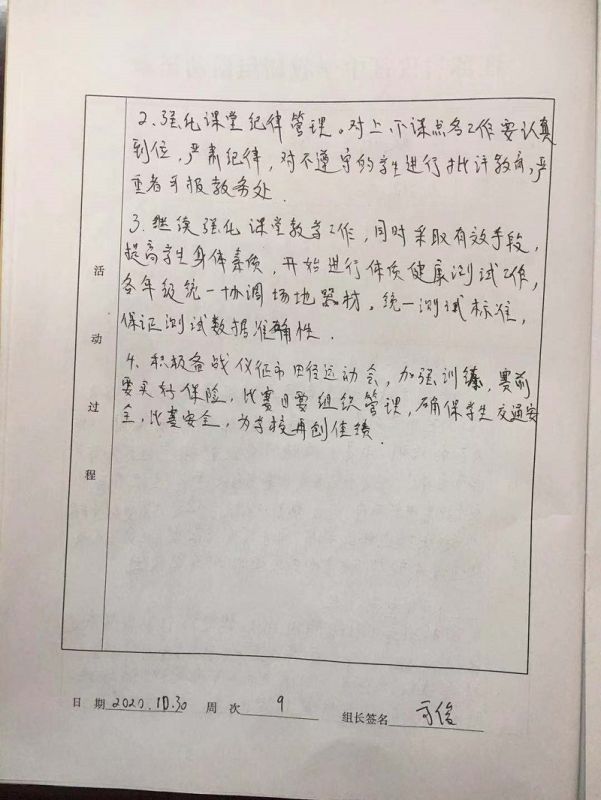 2、强化课堂纪律管理。对上、下课点名工作要认真
到位,严肃纪律,对不遵守的学生进行批评教育,严
重者可报教务处.
3、继续强化课堂教学工作,同时采取有效手段,
提高学生身体素质,开始进行体质健康测试工作,
各年级统一协调场地器材。统一测试标准,
保证测试数据准确性.
4、积极备战仪征市田径运动会,加强训练,赛前
要买好保险,比赛日要组织管理,确保学生交通安
全,比赛安全,为学校再创佳绩.
活
动
过
程
日 期 2020.10.30 周 次 9 组长签名